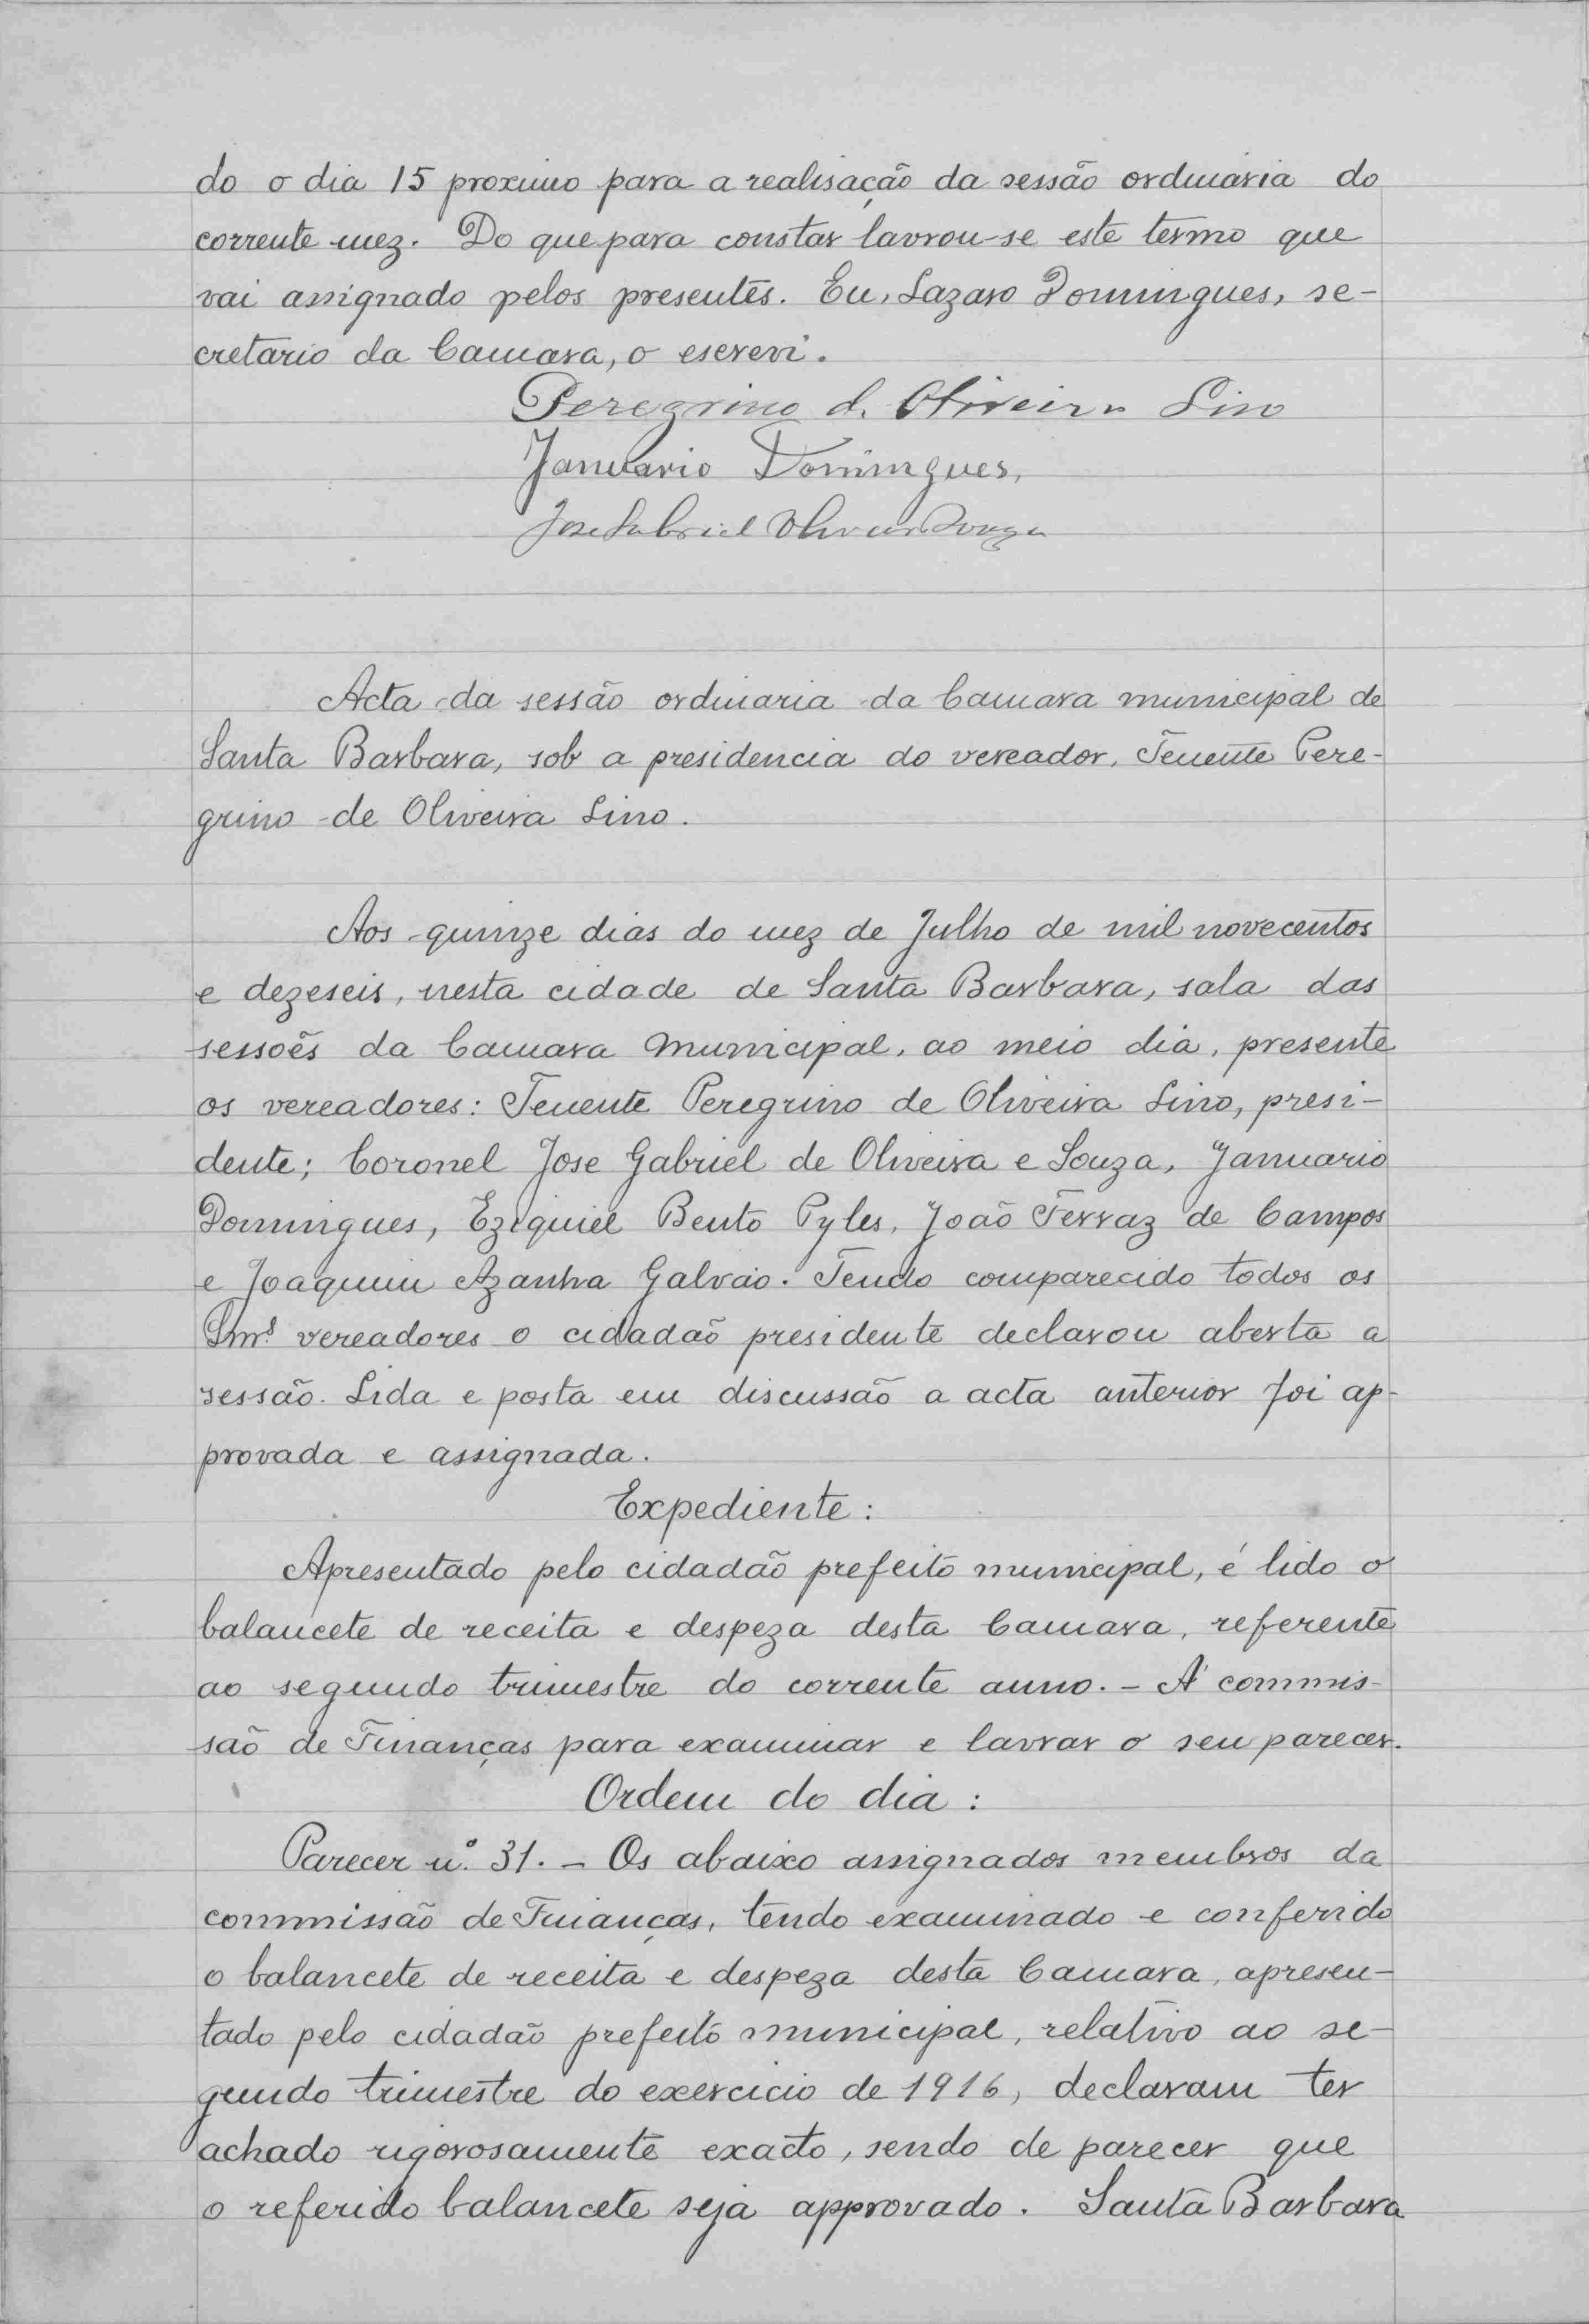 do o dia 15 proximo para a realisação da sessão ordinaria do
corrente mez. Do que para constar lavrou-se este termo que
vai assignado pelos presentes. Eu, Lazaro Domingues, se-
cretario da Camara, o escrevi.
Peregrino d. Oliveira Lino
Januario Domingues,
Jose Gabriel Oliveira Souza
Acta da sessão ordinaria da Camara municipal de
Santa Barbara, sob a presidencia do vereador, Tenente Pere-
grino de Oliveira Lino.
Aos quinze dias do mez de Julho de mil novecentos
e dezeseis, nesta cidade de Santa Barbara, sala das
sessões da Camara Municipal, ao meio dia, presente
os vereadores: Tenente Peregrino de Oliveira Lino, presi-
dente; Coronel Jose Gabriel de Oliveira e Souza, Januario
Domingues, Ezequiel Bento Pyles, João Ferraz de Campos
e Joaquim Azanha Galvão. Tendo comparecido todos os
Snrs vereadores o cidadão presidente declarou aberta a
sessão. Lida e posta em discussão a acta anterior foi ap-
provada e assignada.
Expediente:
Apresentado pelo cidadão prefeito municipal, é lido o
balancete de receita e despeza desta Camara, referente
ao segundo trimestre do corrente anno. - A' commis-
são de Finanças para examinar e lavrar o seu parecer.
Ordem do dia:
Parecer nº 31. - Os abaixo assignados membros da
commissão de Finanças, tendo examinado e conferido
o balancete de receita e despeza desta Camara, apresen-
tado pelo cidadão prefeito municipal, relativo ao se-
gundo trimestre do exercicio de 1916, declaram ter
achado rigorosamente exacto, sendo de parecer que
o referido balancete seja approvado. Santa Barbara